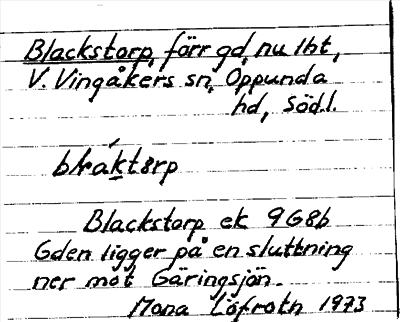 Blackstorp, förr gd, nu lht,
V. Vingåkers sn, Oppunda
hd, Södl.
bla̍k̠tørp
Blackstorp ek 9G8b
Gden ligger på en sluttning
ner mot Gäringsjön.
Mona Löfroth 1973